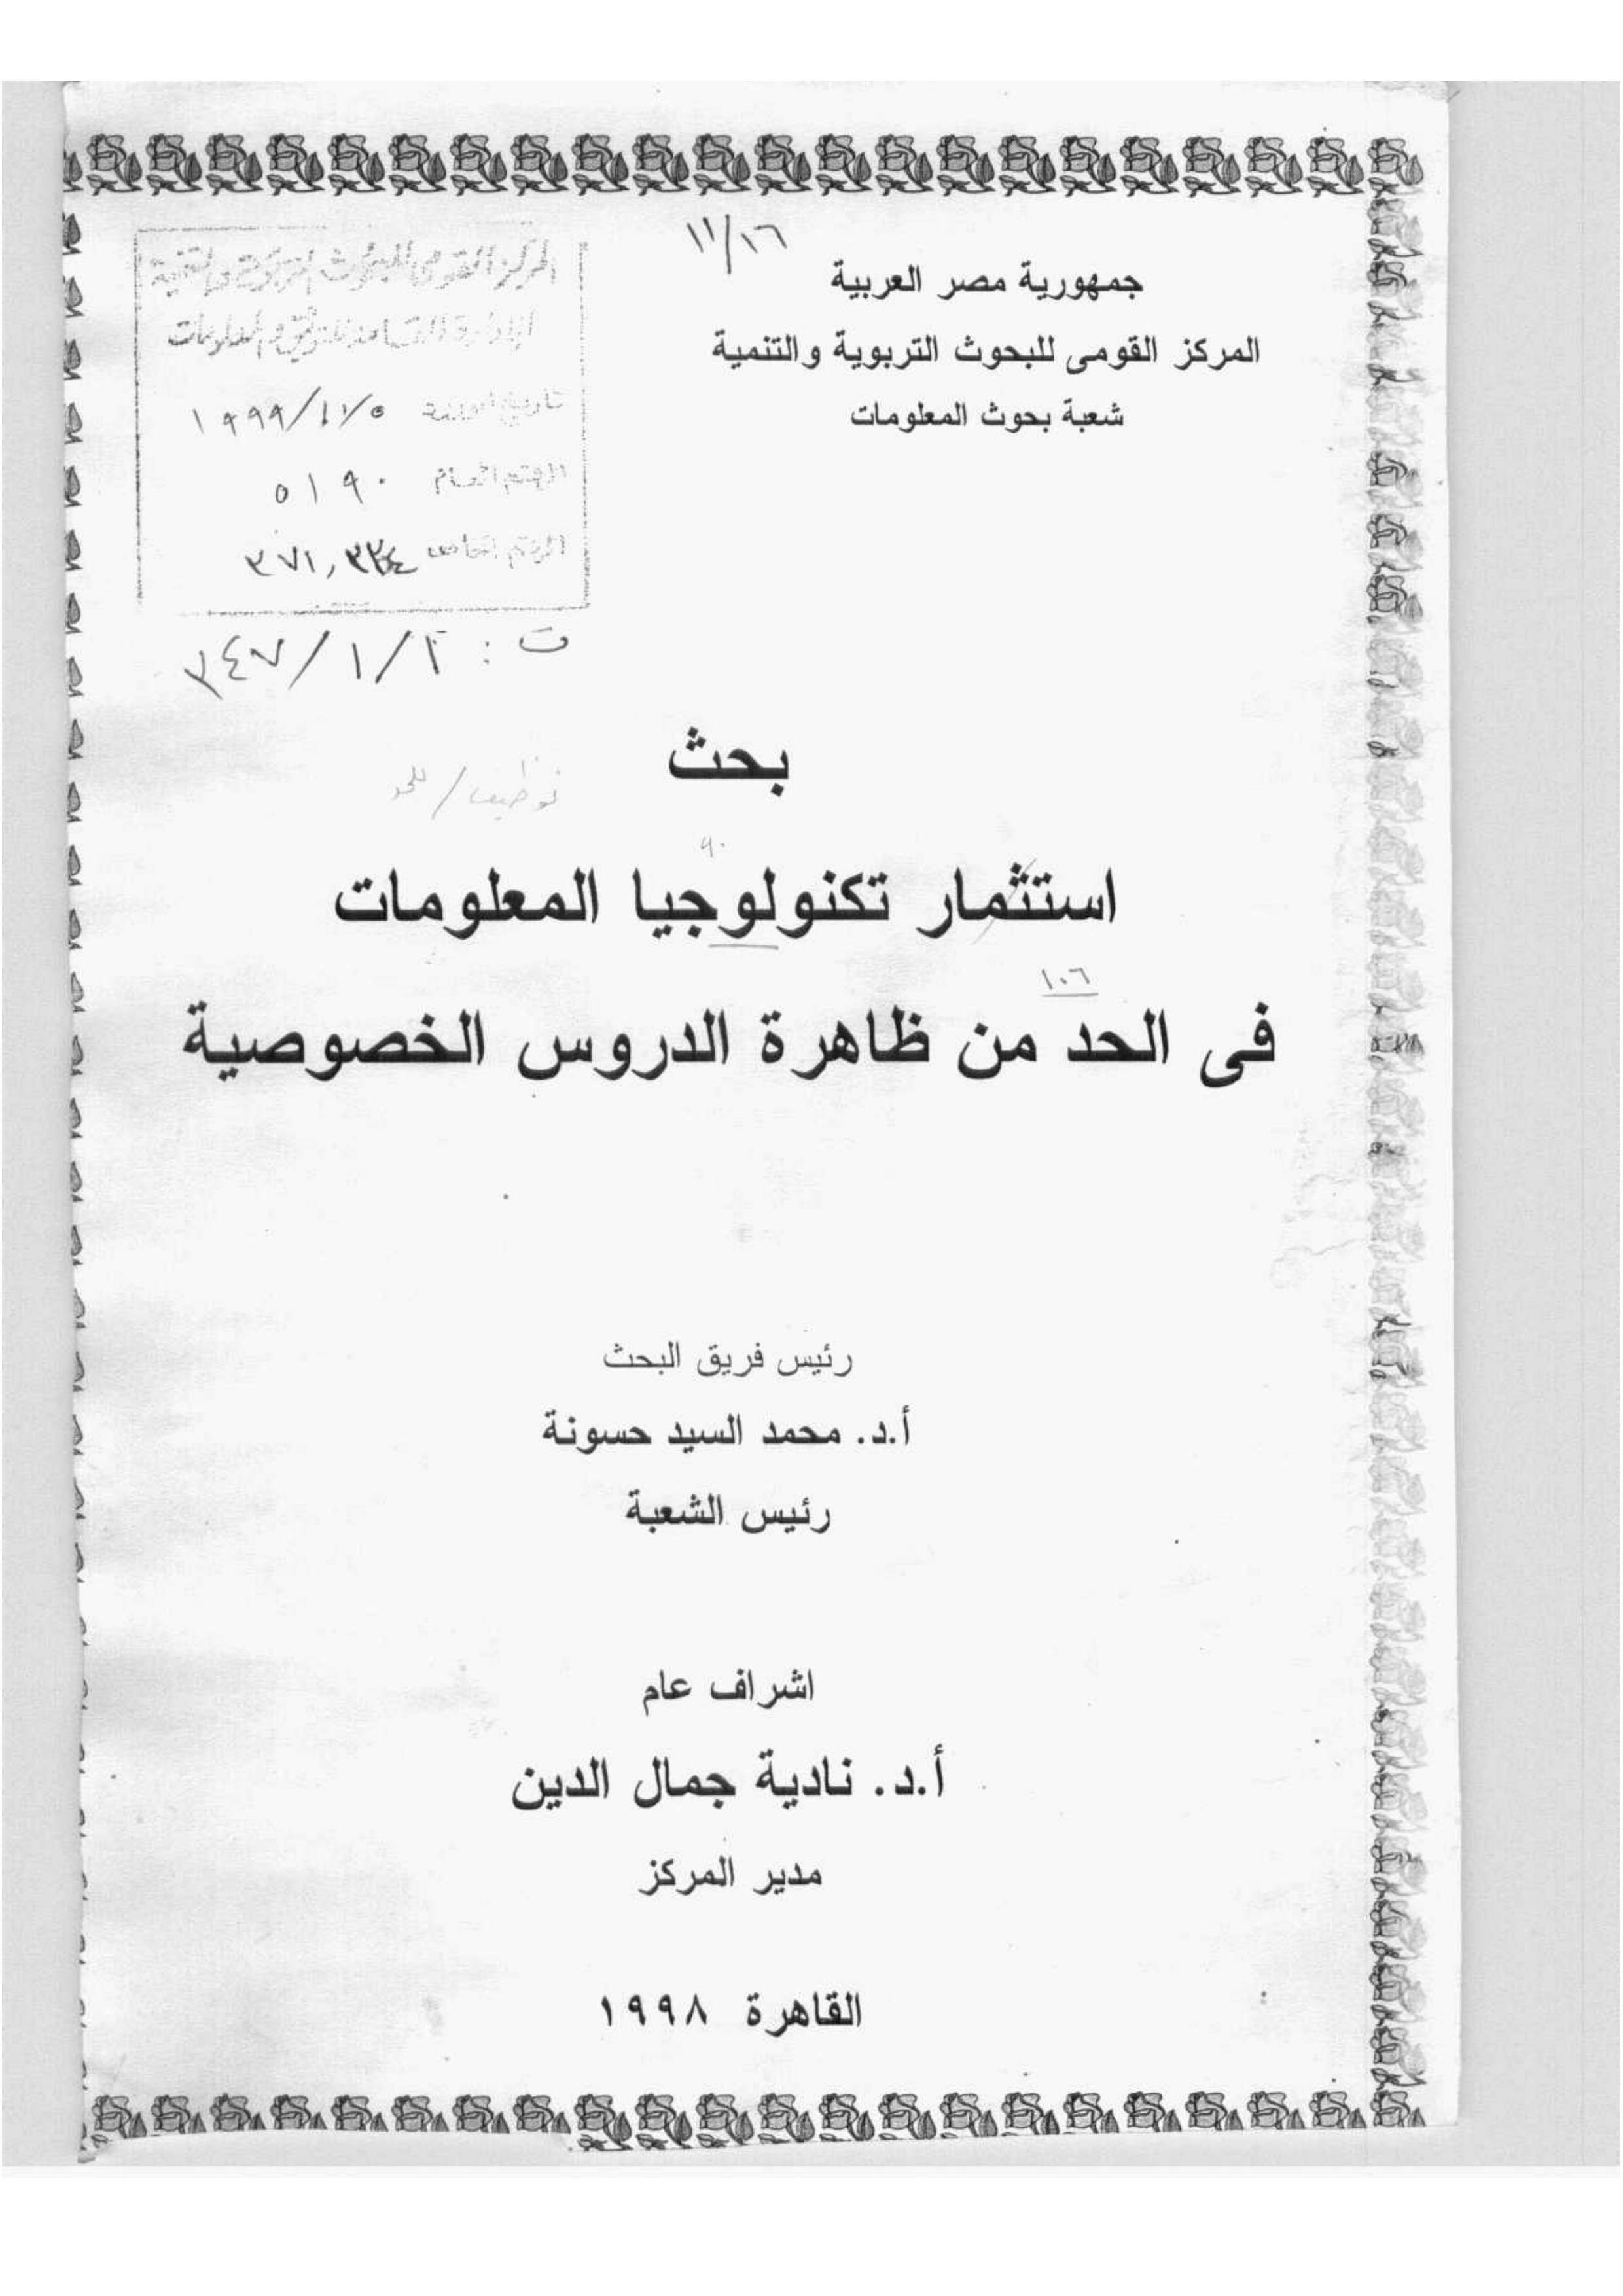 ١١/١٦
جمهورية مصر العربية
المركز القومى للبحوث التربوية والتنمية
شعبة بحوث المعلومات
المركز القومى للبحوث التربوية والتنمية
تاريخ ١٩٩٩/١١/٥
الرقم العام ٥١٩٠
الرقم الخاص ٣٧١,٣٣٤
ت : ٣٤٧/١/٢
بحث
توظيف /
استثمار تكنولوجيا المعلومات
١٠٦
فى الحد من ظاهرة الدروس الخصوصية
رئيس فريق البحث
أ.د. محمد السيد حسونة
رئيس الشعبة
اشراف عام
أ.د. نادية جمال الدين
مدير المركز
القاهرة ١٩٩٨